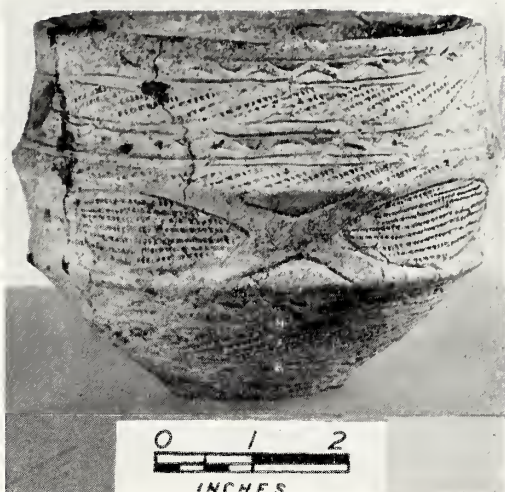 0 1 2
INCHES